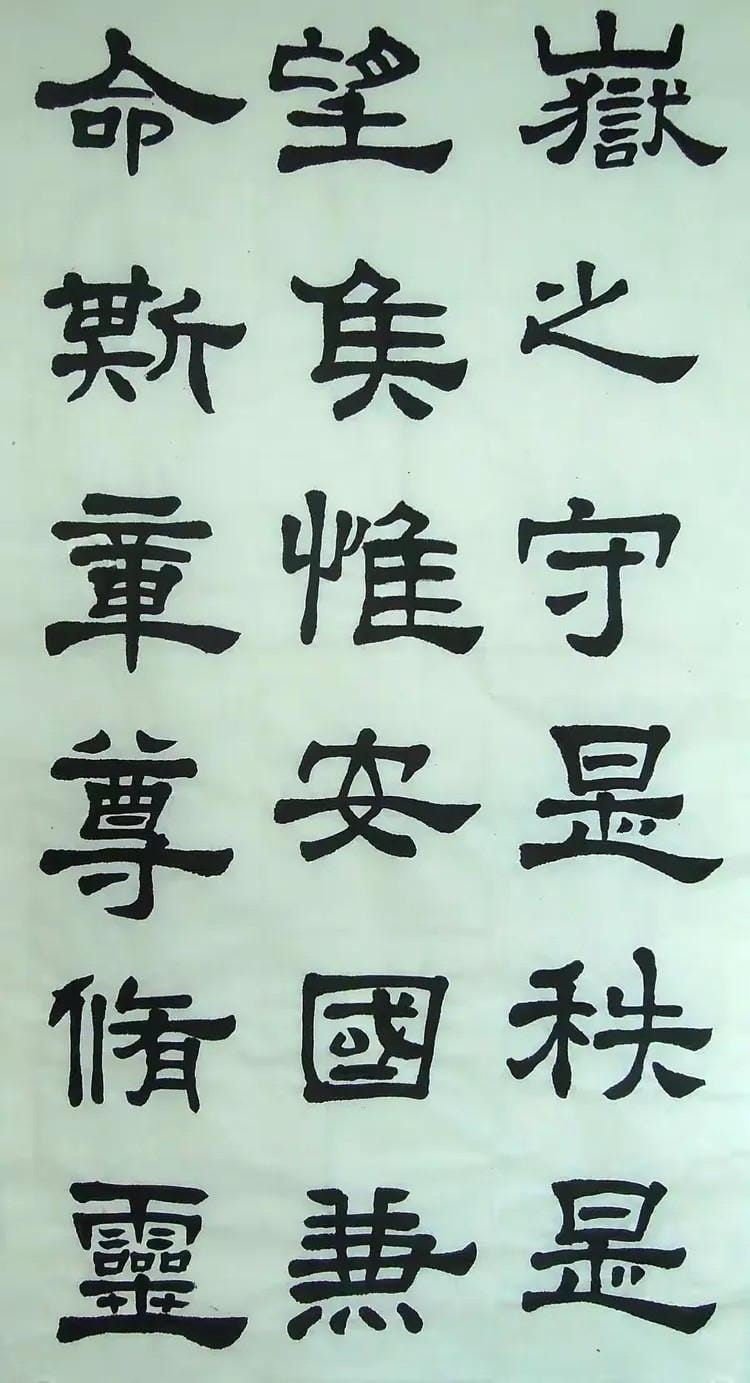 嶽之守是秩是
望矦惟安國兼
命斯章尊脩靈